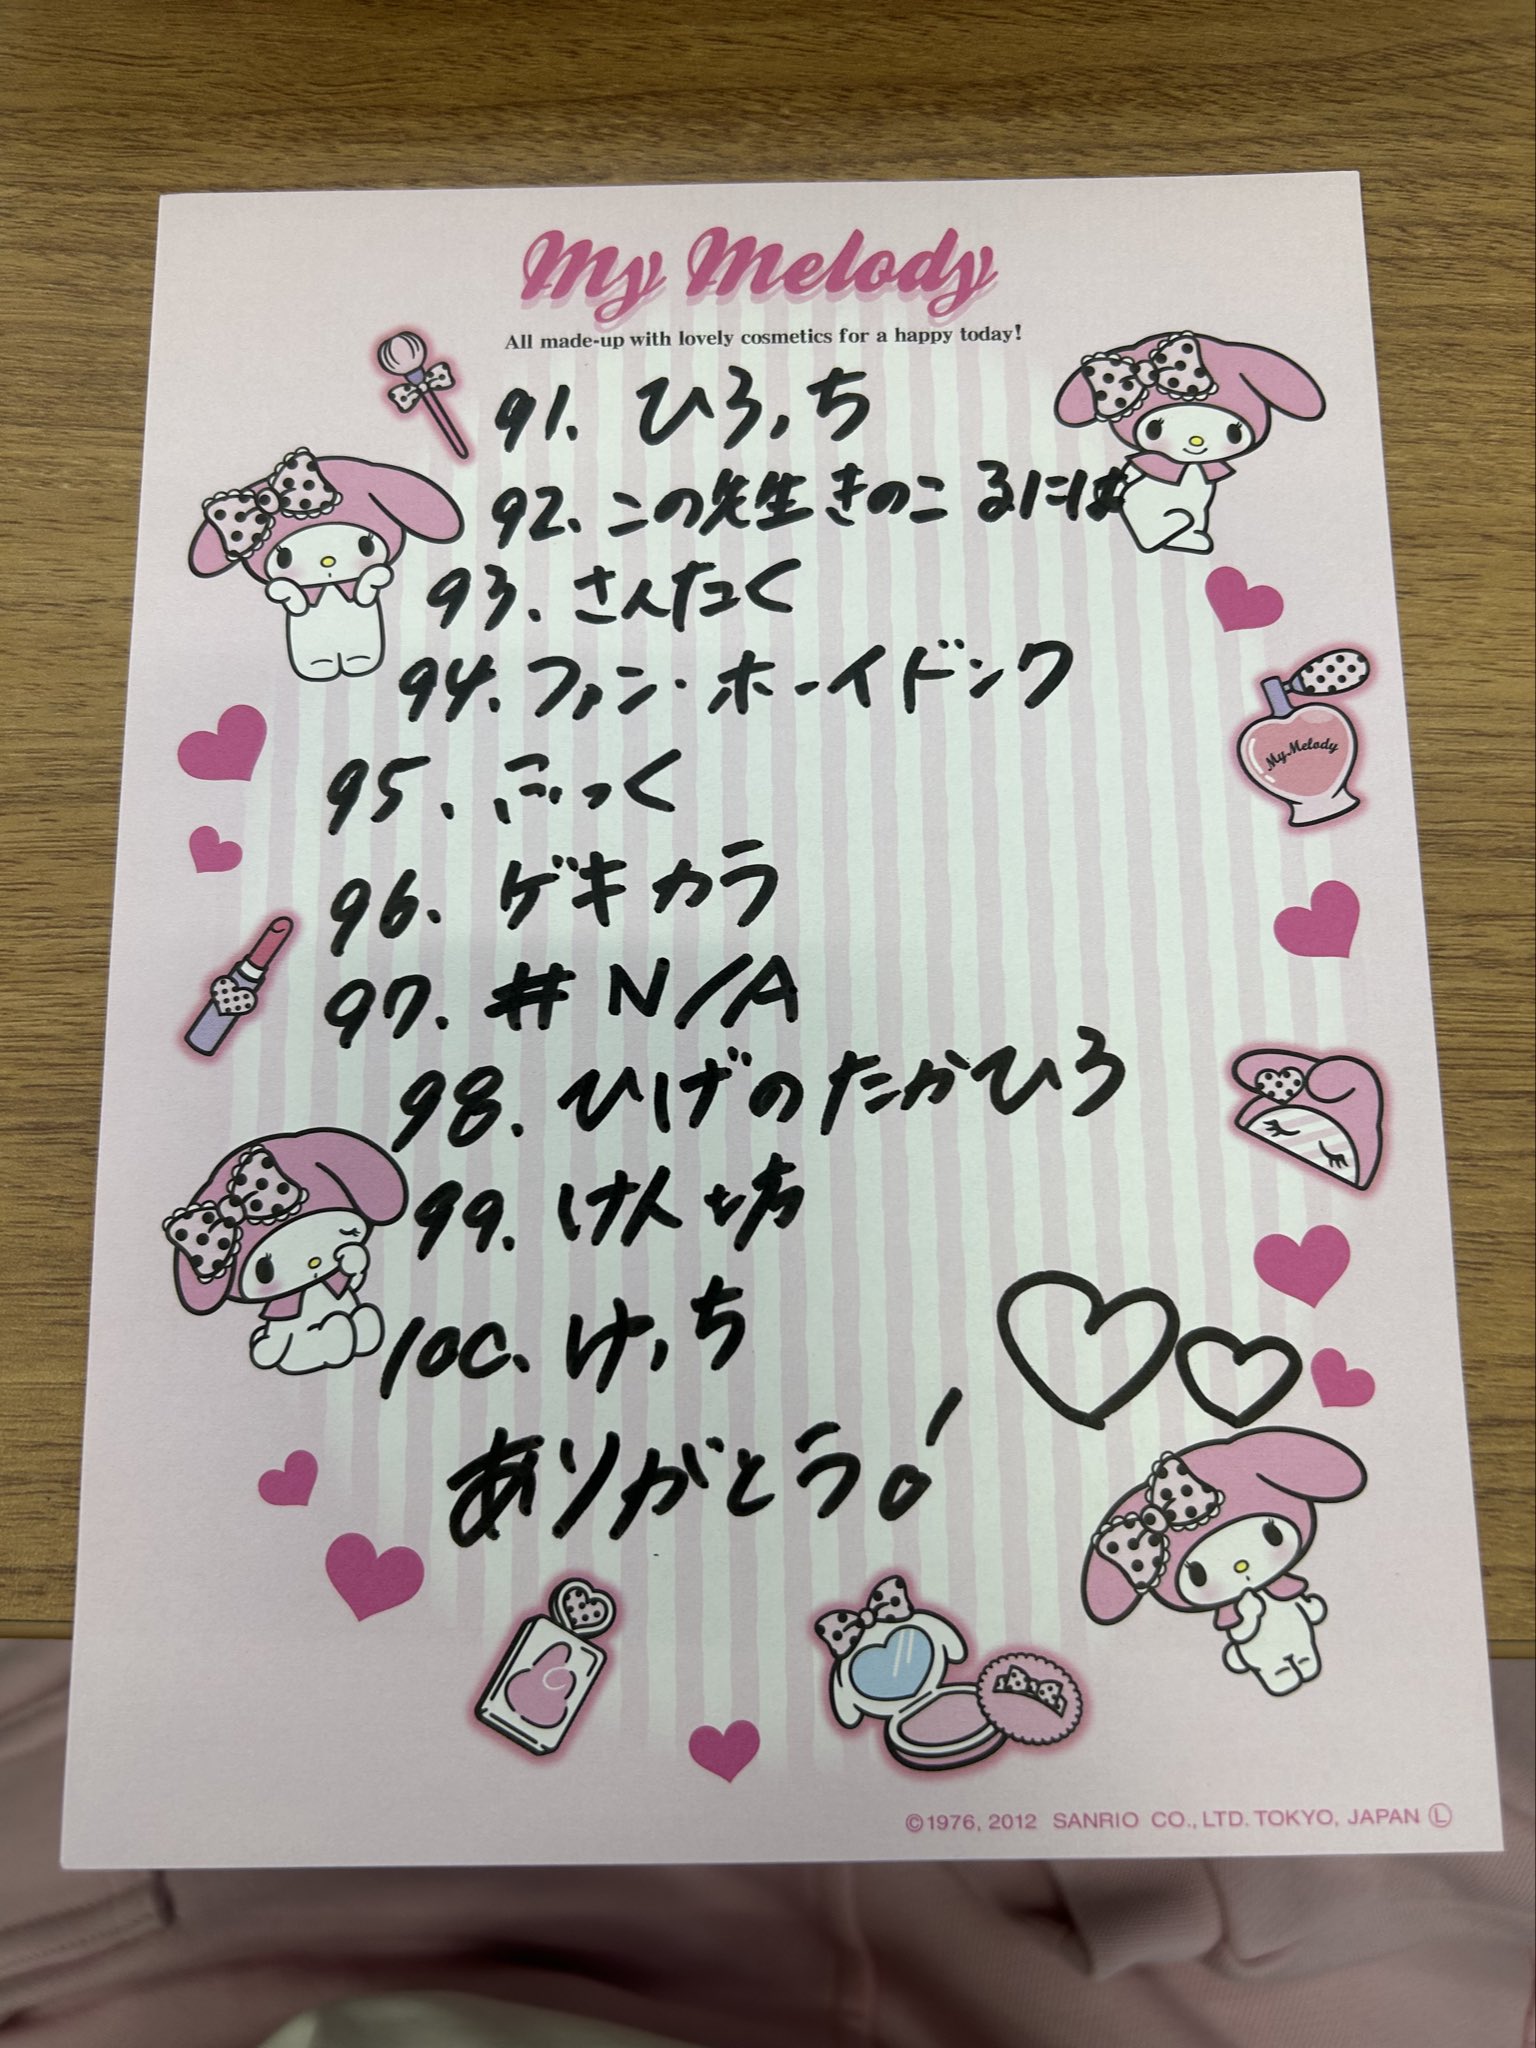 My Melody
All made-up with lovely cosmetics for a happy today!
91. ひろっち
92. この先生きのこるには
93. さんたく
94. ファン・ホーイドンク
My Melody
95. ごっく
96. ゲキカラ
97. #N/A
98. ひげのたかひろ
99. けん坊
100. けっち
ありがとう!
©1976, 2012 SANRIO CO., LTD. TOKYO, JAPAN Ⓛ